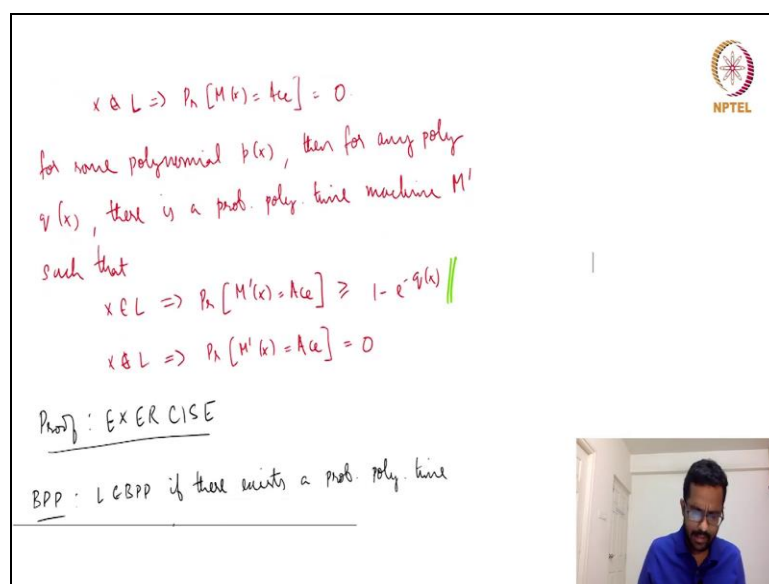 x ∉ L => Pr[M(x) = Acc] = 0.
for some polynomial p(x), then for any poly
q(x), there is a prob. poly. time machine M'
such that
x ∈ L => Pr[M'(x) = Acc] ≥ 1 - e^{-q(x)}
x ∉ L => Pr[M'(x) = Acc] = 0
Proof: EXERCISE
BPP: L ∈ BPP if there exists a prob. poly. time
NPTEL